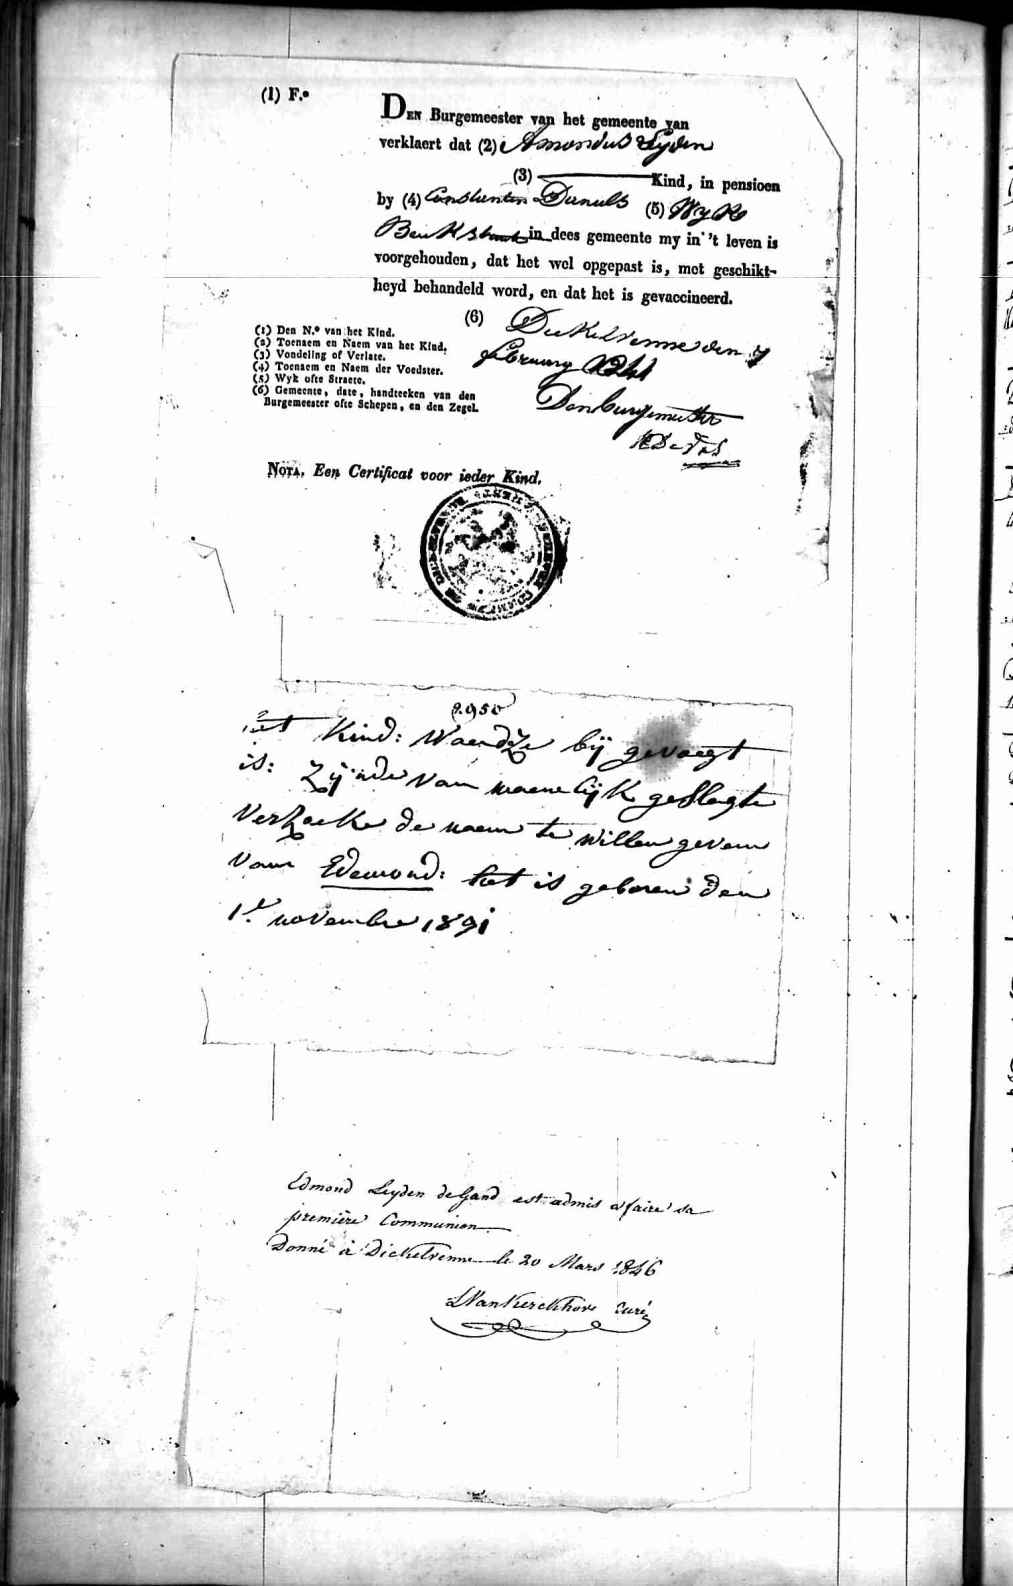 (1) F.º
DEN Burgemeester van het gemeente van
verklaert dat (2) Amondus Leyden
(3) Kind, in pensioen
by (4) Constantin Daniels (5) Wyk
in dees gemeente my in 't leven is
voorgehouden, dat het wel opgepast is, met geschikt-
heyd behandeld word, en dat het is gevaccineerd.
(6) Dickelvenne den 7
february 1841
Den burgemeester
(1) Den N.º van het Kind.
(2) Toenaem en Naem van het Kind.
(3) Vondeling of Verlate.
(4) Toenaem en Naem der Voedster.
(5) Wyk ofte Straete.
(6) Gemeente, date, handteeken van den
Burgemeester ofte Schepen, en den Zegel.
NOTA. Een Certificat voor ieder Kind.
het Kind: Waerdze bij gevoegt
is: Zijnde van manelijk geslagte
verzoeke de naem te willen geven
van Edemond: het is geboren den
1.e novembre 1891
Edmond Leyden de Gand est admis à faire sa
première Communion
Donné à Dickelvenne le 20 Mars 1846
VanKerckhove Curé